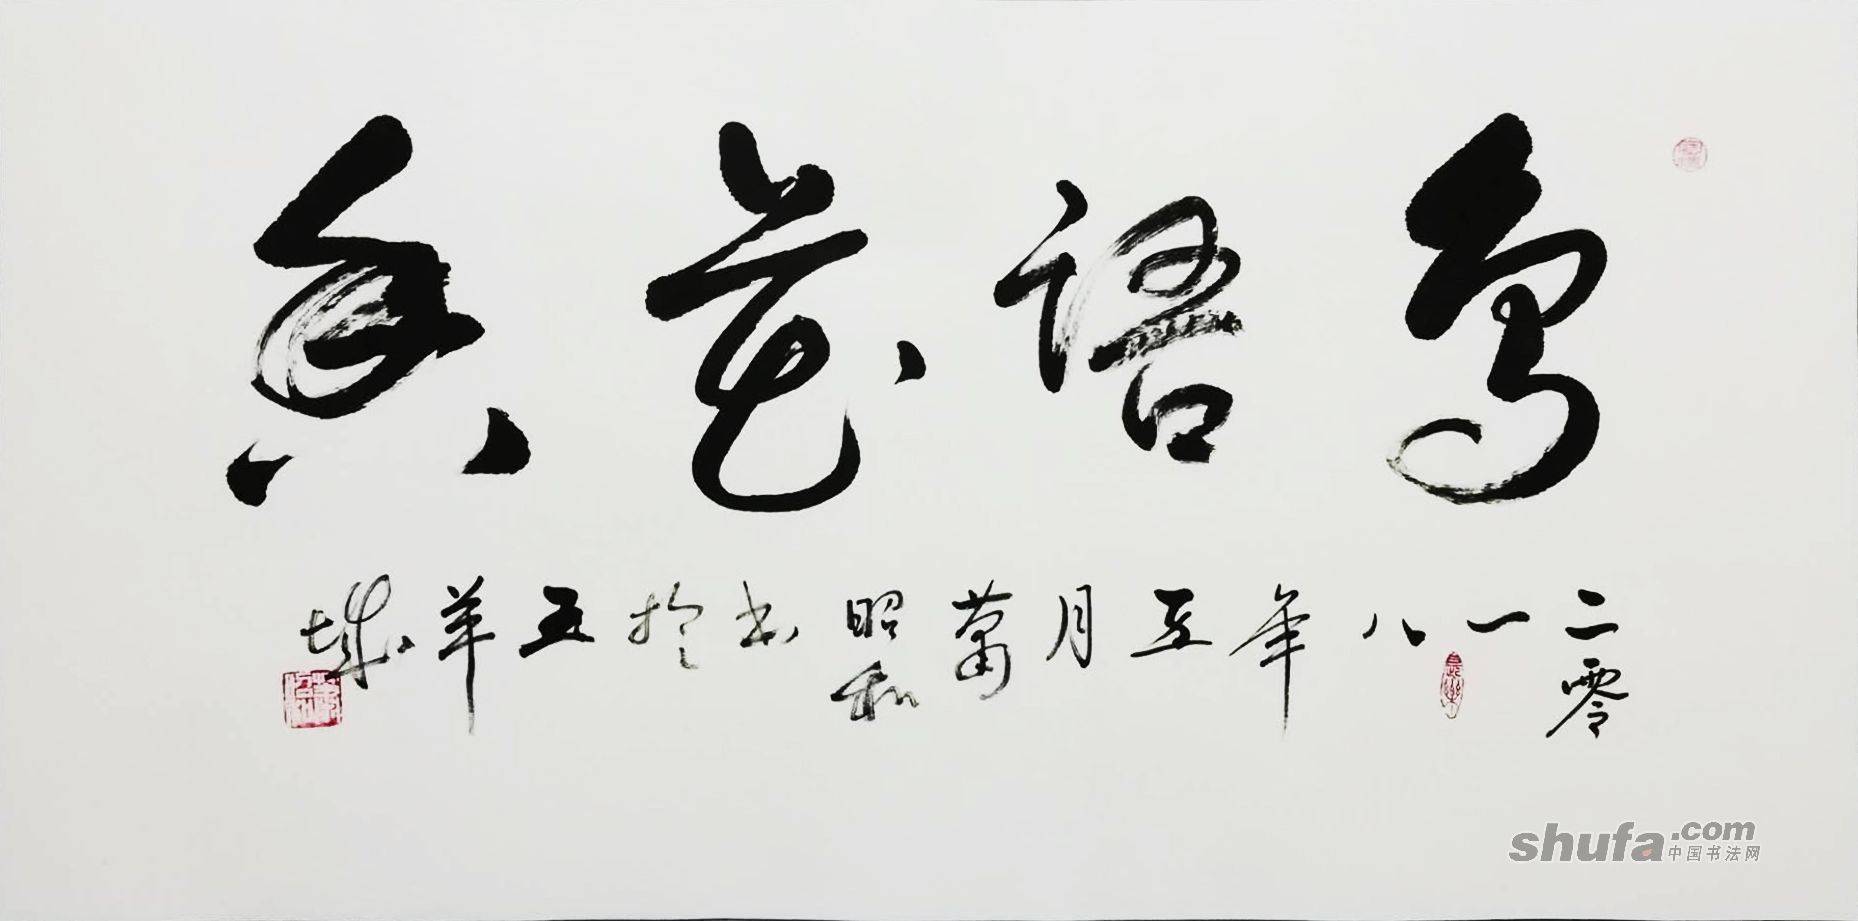 鸟语花香
二零一八年五月萧昭和书于五羊城
shufa.com
中国书法网